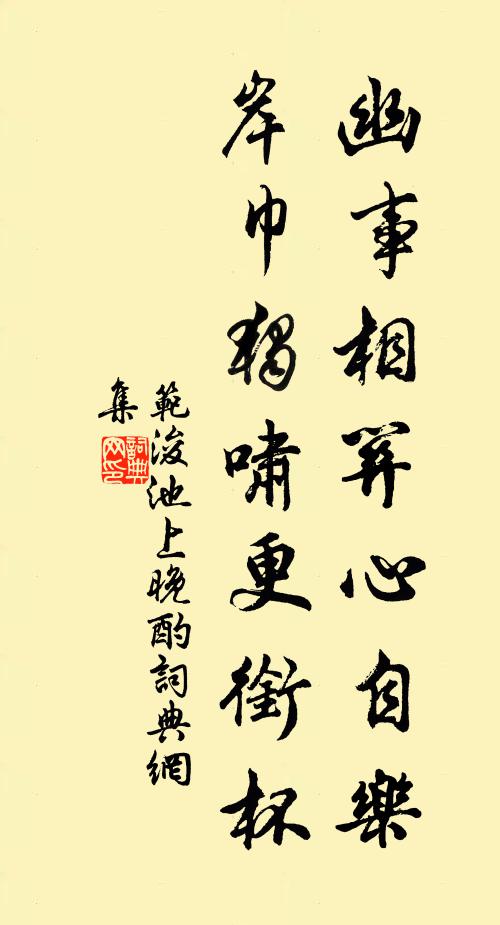 幽事相關心自樂
岸巾獨嘯更銜杯
範浚池上晚酌詞典網
集
詞典網印